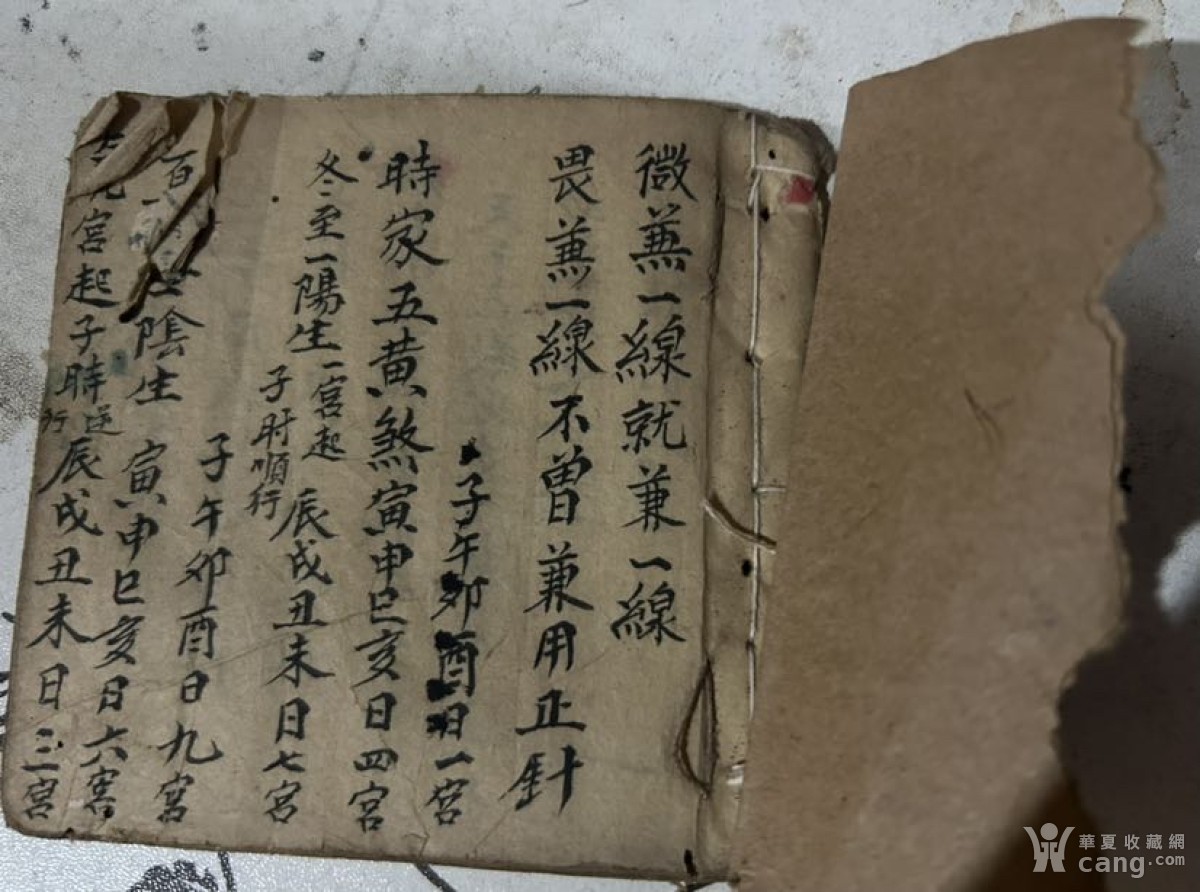 微兼一線就兼一線
畏兼一線不曾兼用正針
子午卯酉日一宮
時家五黄煞寅申巳亥日四宮
冬至一陽生一宮起子时順行辰戌丑未日七宮
子午卯酉日九宮
陰生寅申巳亥日六宮
宮起子時逆行辰戌丑未日三宮
華夏收藏網
cang.com